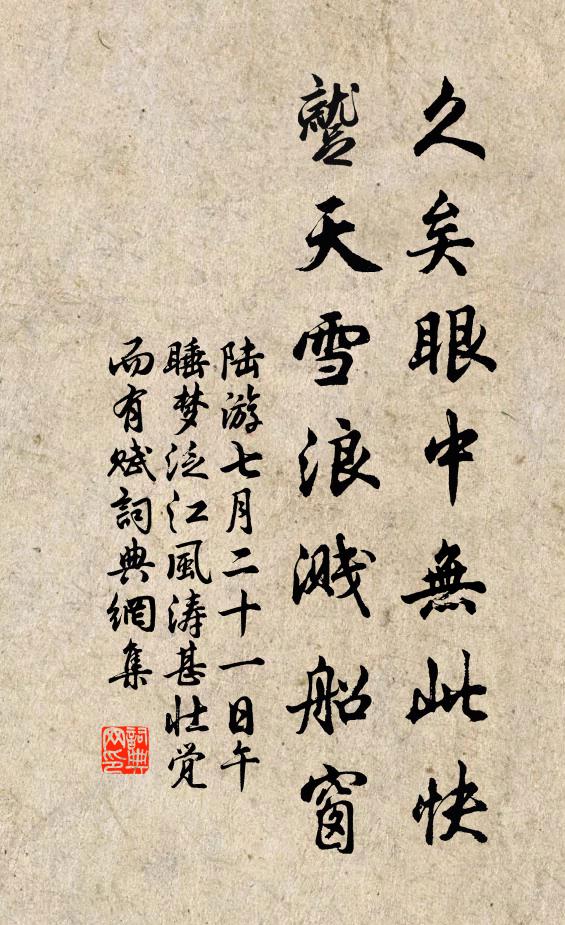 久矣眼中無此快
蹙天雪浪濺船窗
陆游七月二十一日午
睡梦泛江風涛甚壮觉
而有赋詞典網集
詞典
网印